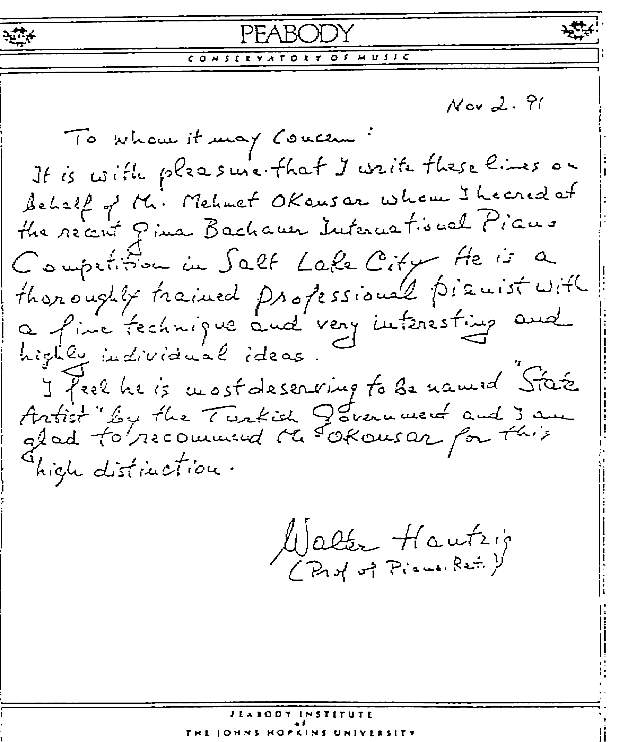 PEABODY
CONSERVATORY OF MUSIC
Nov 2. 91
To whom it may concern:
It is with pleasure that I write these lines on
Behalf of Mr. Mehmet Okonsar whom I heared at
the recent Gina Bachauer International Piano
Competition in Salt Lake City He is a
thoroughly trained professional pianist with
a fine technique and very interesting and
highly individual ideas.
I feel he is most deserving to be named "State
Artist" by the Turkish Government and I am
glad to recommend Mr Okonsar for this
high distinction.
Walter Hautzig
(Prof of Piano. Ret.)
PEABODY INSTITUTE
of
THE JOHNS HOPKINS UNIVERSITY